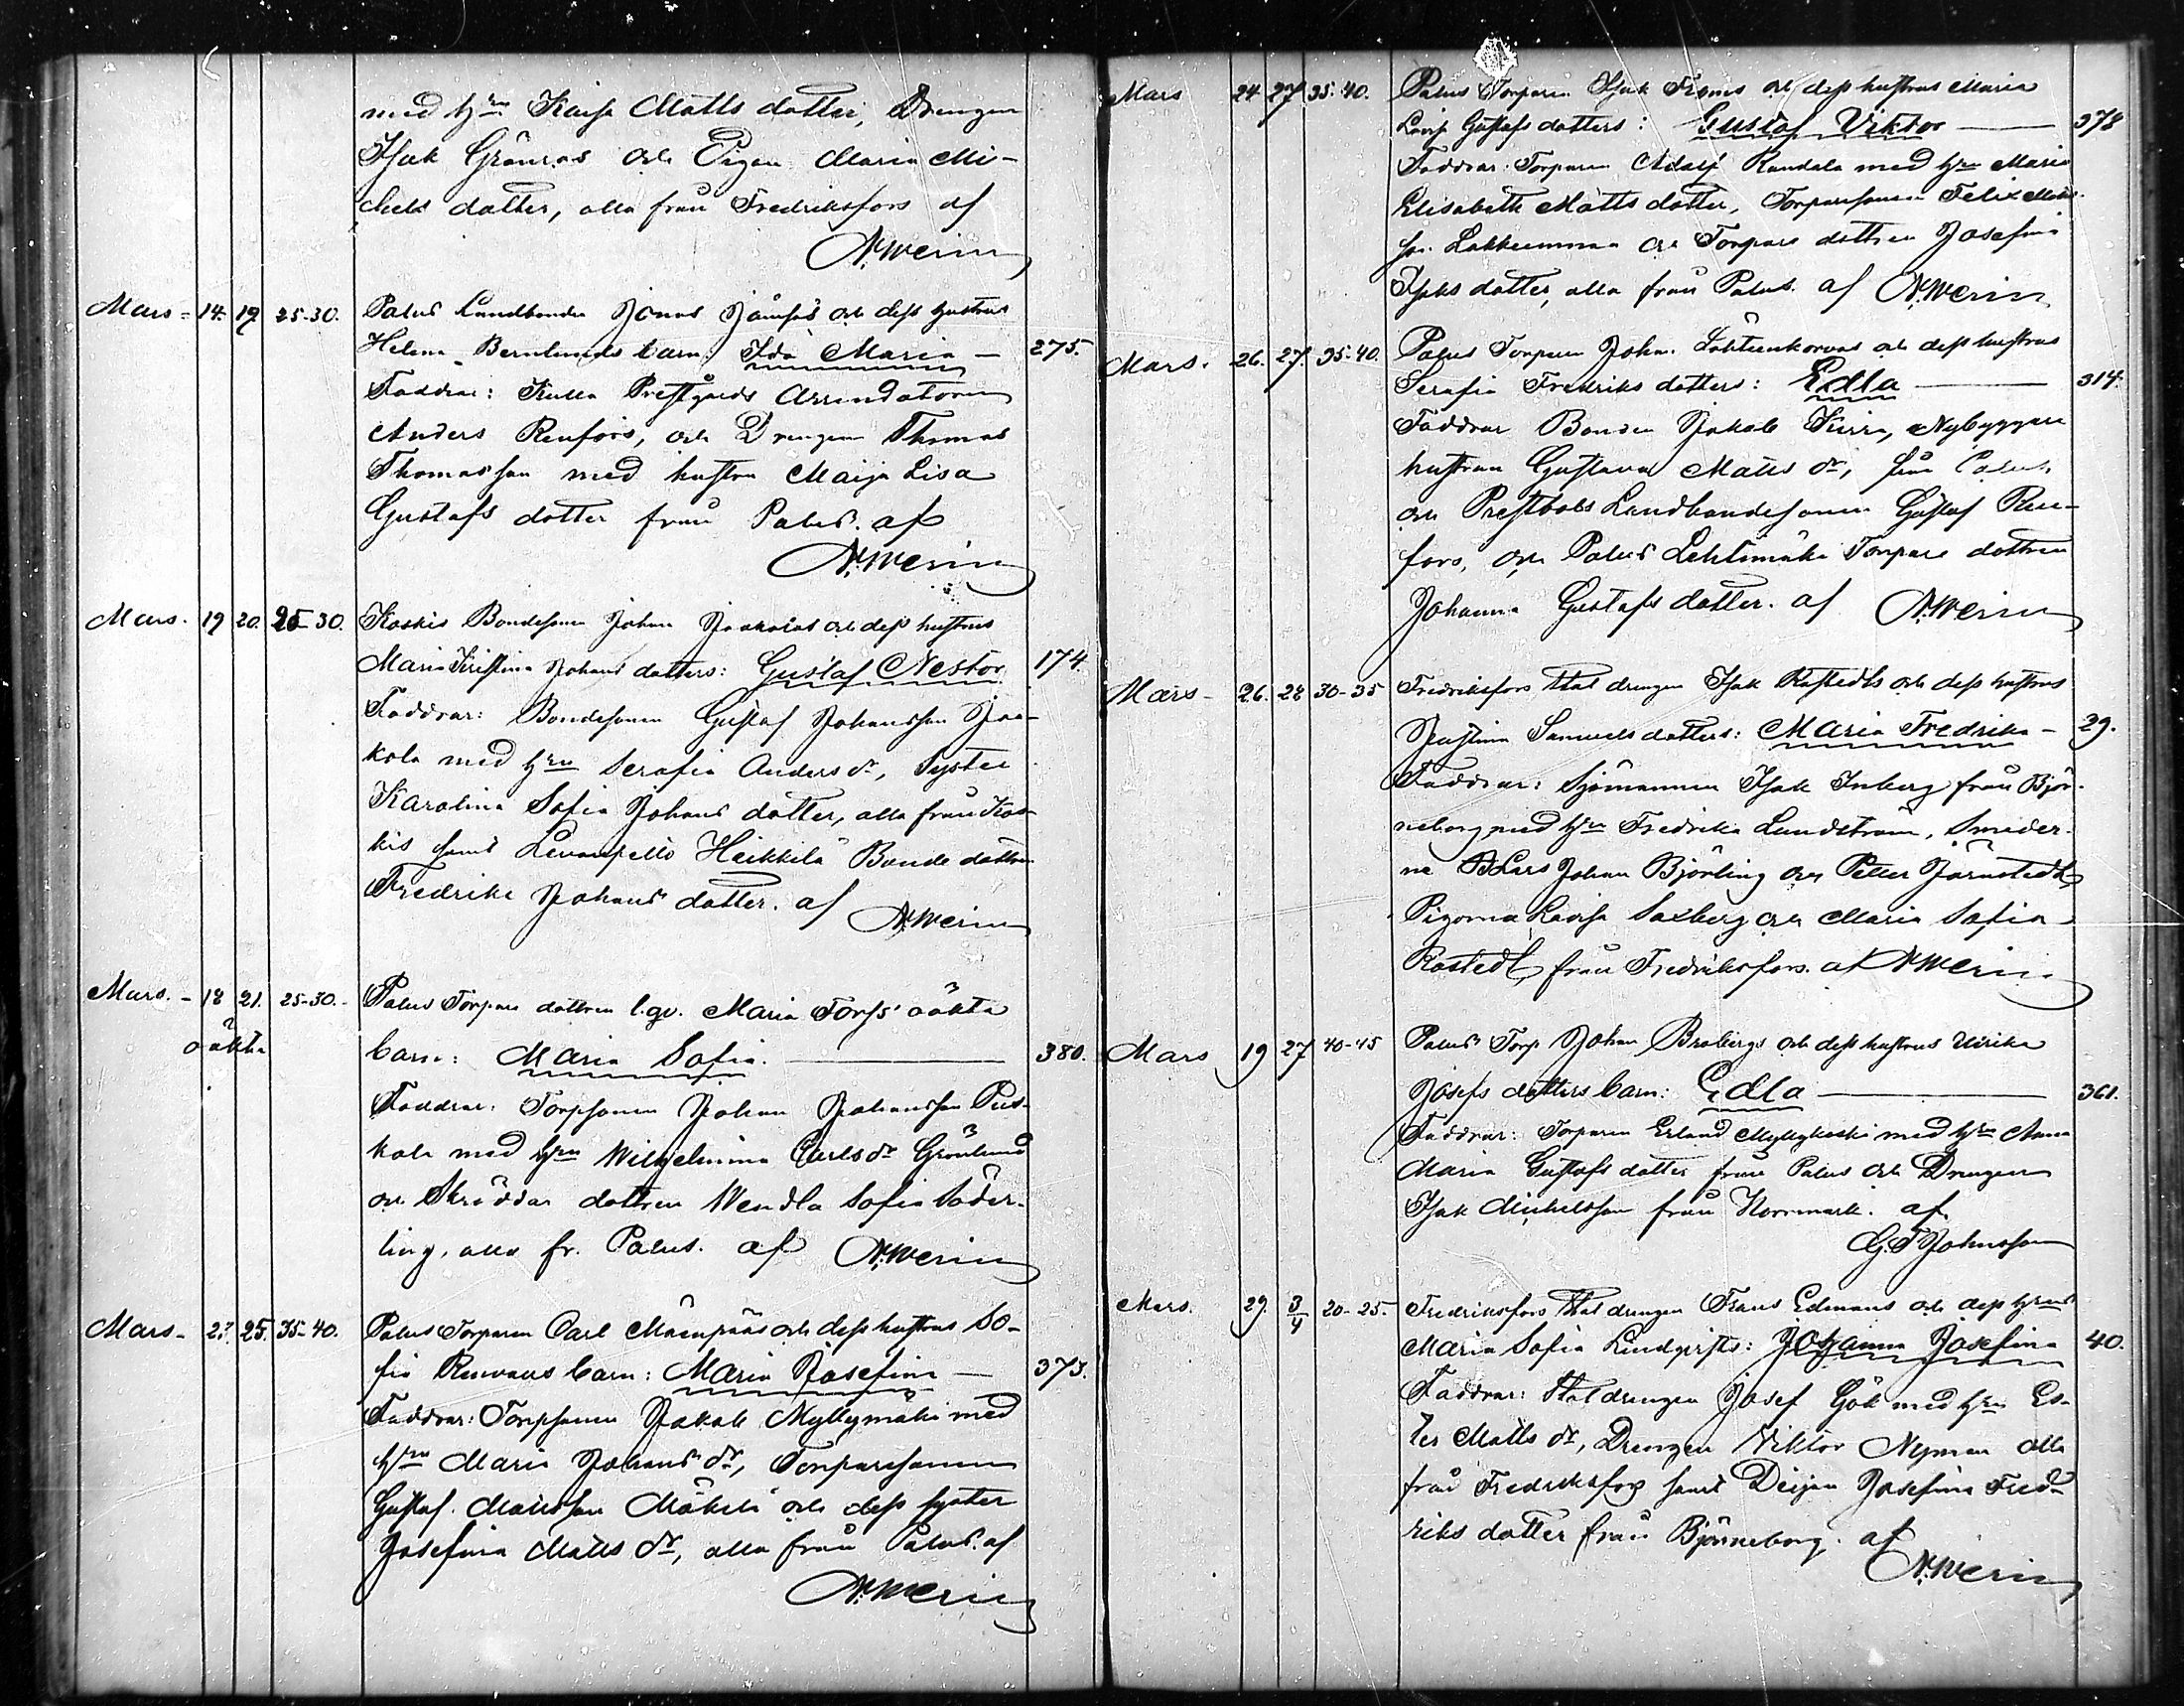 med hrn Kaisa Matts dotter, Drengen
Isak Grönros och Pigan Maria Mi-
chels dotter, alla från Fredriksfors af
N. Werin
Mars - 14. 19 25-30. Palus Landbonden Jonas Jåfs's och dess hustrus
Helena Bernlunds barn: Ida Maria - 275.
Faddrar: Kulla Prestgårds Arrendatorn
Anders Renfors, och Drengen Thomas
Thomasson med hustru Maija Lisa
Gustafs dotter från Palus. af
N. Werin
Mars. 19 20. 25-30. Koskis Bondesonen Johan Jaakolas och dess hustrus
Maria Kristina Johans dotters: Gustaf Nestor 174.
Faddrar: Bondesonen Gustaf Johansson Jaa-
kola med hrn Serafia Anders dr, Syster
Karolina Sofia Johans dotter, alla från Kos-
kis samt Levanpelto Heikkilä Bonde dottren
Fredrika Johans dotter. af N. Werin
Mars. - 18 21. 25-30. - Palus Torpare dottren l.qv. Maria Forss' oäkta
oäkta barn: Maria Sofia. 380.
Faddrar: Torpsonen Johan Johansson Pus-
kala med hrn Wilhelmina Carls dr Grönlund
och Skräddar dottren Wendla Sofia Söder-
ling, alla fr. Palus. af N. Werin
Mars - 23. 25. 35-40. Palus Torparen Carl Mäenpääs och dess hustrus So-
fia Renvaus barn: Maria Josefina - 373.
Faddrar: Torpsonen Jakob Myllymäki med
hrn Maria Johans dr, Torparesonen
Gustaf Mattsson Mäkelä och dess syster
Josefina Matts dr, alla från Palus. af
N. Werin
Mars 24 27 35-40. Palus Torparen Isak Froms och dess hustrus Maria
Lovis Gustafs dotters: Gustaf Viktor 378
Faddrar: Torparen Adolf Randala med hrn Maria
Elisabeth Matts dotter, Torparesonen Felix Matts-
son Lakkeenmaa och Torpare dottren Josefina
Isaks dotter, alla från Palus. af N. Werin
Mars. 26. 27. 35-40. Palus Torparen Johan Lähteenkorvas och dess hustrus
Serafia Fredriks dotters: Edla 314.
Faddrar Bonden Jakob Kirra, Nybyggare
hustrun Gustava Matts dr, från Palus.
och Prestbols Landbondesonen Gustaf Ren-
fors, och Palus Lehtimäki Torpare dottren
Johanna Gustafs dotter. af N. Werin
Mars - 26. 28 30-35 Fredriksfors Stal drengen Isak Rastedts och dess hustrus
Justina Samuels dotters: Maria Fredrika - 29.
Faddrar: Sjömannen Isak Inberg från Björ-
neborg med hrn Fredrika Lundström, Smeder-
na Lars Johan Björling och Petter Järnstedt,
Pigorna Lovisa Saxberg och Maria Sofia
Rastedt, från Fredriksfors. af N. Werin
Mars 19 27 40-45 Palus Torp Johan Brobergs och dess hustrus Ulrika
Josefs dotters barn: Edla 361.
Faddrar: Torparen Erland Myllykoski med hrn Anna
Maria Gustafs dotter från Palus och Drengen
Isak Michelsson från Norrmark. af
G. F. Johnsson
Mars. 29. 3/4 20-25. Fredriksfors Stal drengen Frans Edmans och dess hrus
Maria Sofia Lindqvists: Johanna Josefina 40.
Faddrar: Stal drengen Josef Gök med hrn Es-
ter Matts dr, Drengen Viktor Nyman alla
från Fredriksfors samt Deijan Josefina Fred-
riks dotter från Björneborg. af
N. Werin